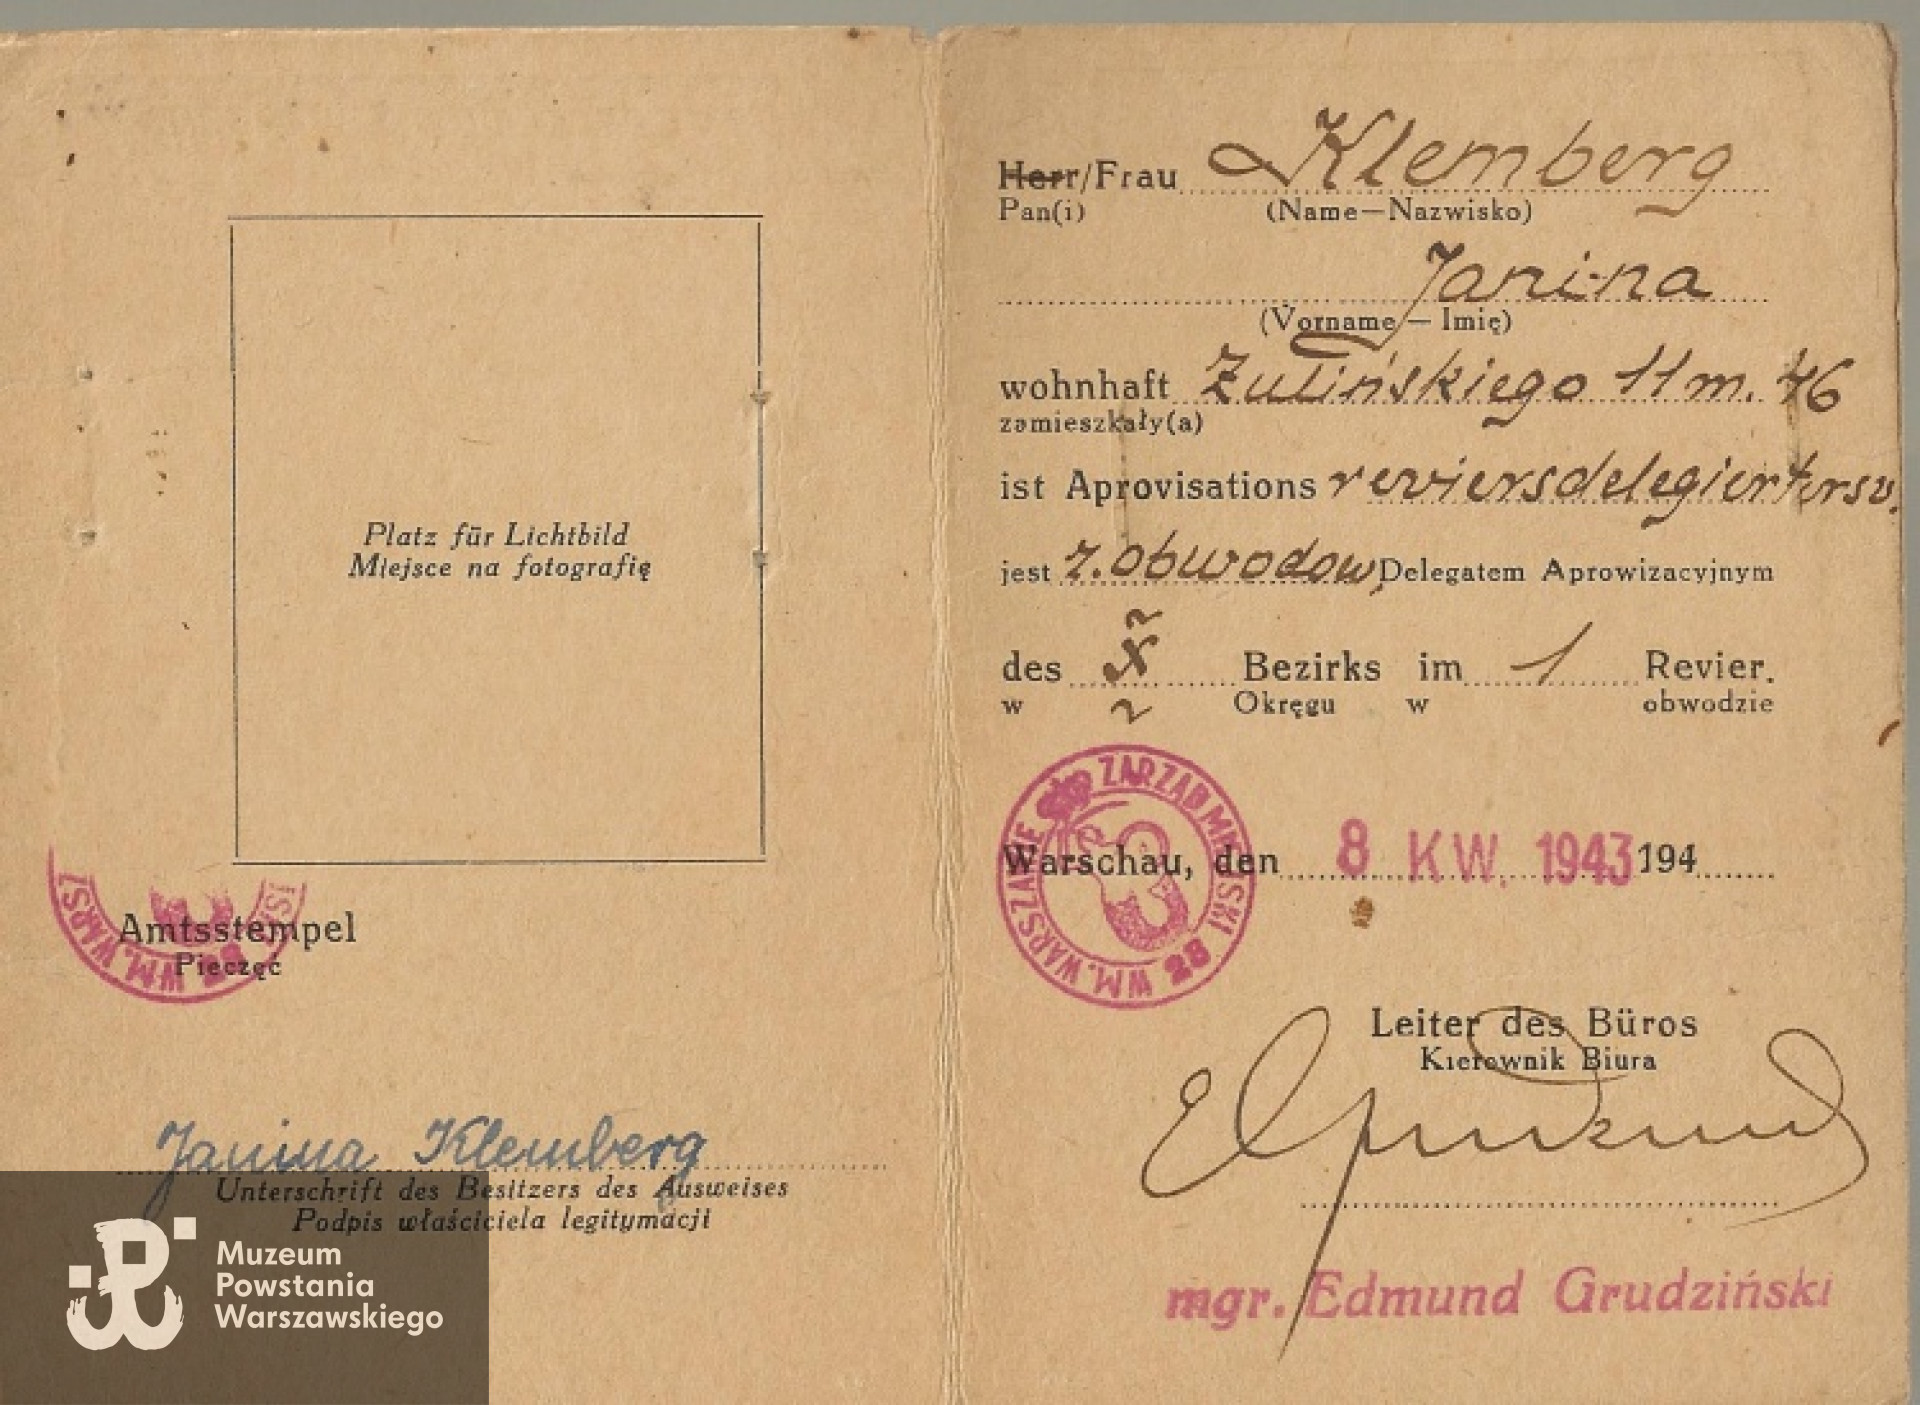 Platz für Lichtbild
Miejsce na fotografię
Amtsstempel
Pieczęć
WM. WARSZ
28
Janina Klemberg
Unterschrift des Besitzers des Ausweises
Podpis właściciela legitymacji
Muzeum
Powstania
Warszawskiego
Herr/Frau Klemberg
Pan(i) (Name—Nazwisko)
Janina
(Vorname — Imię)
wohnhaft Żulińskiego 11 m. 46
zamieszkały(a)
ist Aprovisations reviersdelegiertersv.
jest z. obwodow, Delegatem Aprowizacyjnym
des X Bezirks im 1 Revier.
w Okręgu w obwodzie
ZARZĄD MIEJSKI WM. WARSZAWIE
28
Warschau, den 8 KW. 1943 194
Leiter des Büros
Kierownik Biura
mgr. Edmund Grudziński